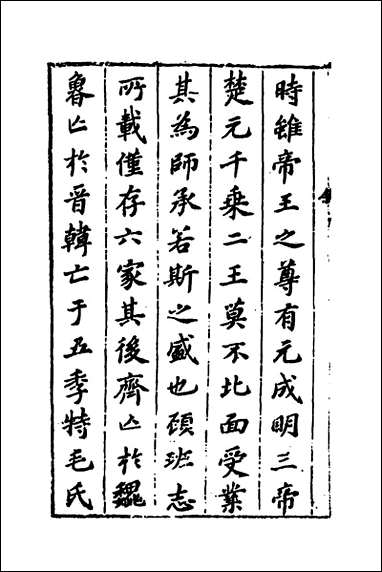 時雖帝王之尊有元成明三帝
楚元千乗二王莫不北面受業
其為師承若斯之盛也顧班志
所載僅存六家其後齊亡於魏
魯亡於晉韓亡于五季特毛氏